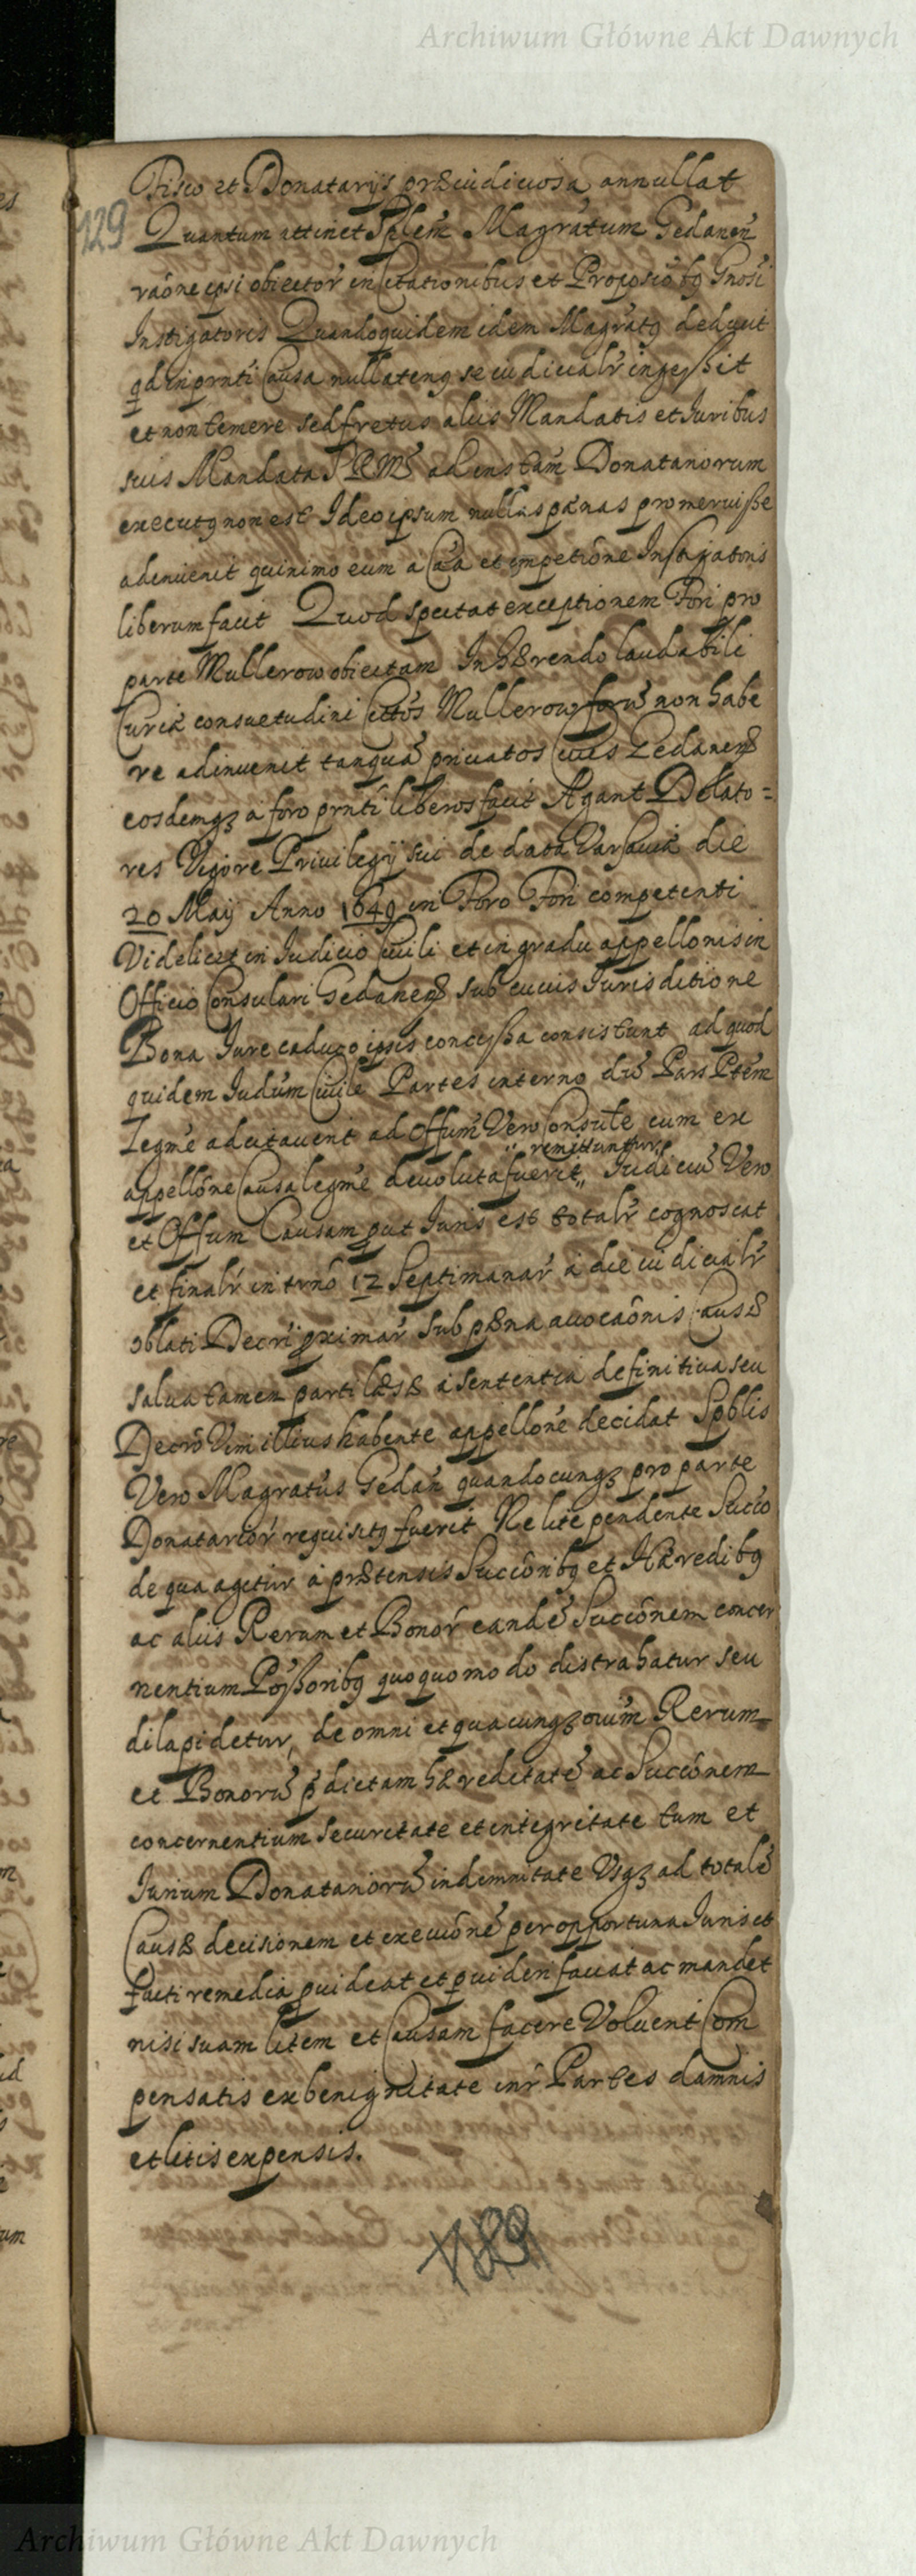 Archiwum Główne Akt Dawnych
Fisco et Donatarijs præiudiciosa annullat
129
Quantum attinet Splem̃ Magratum Gedanen̄
raône ipsi obiector̃ in Citationibus et Proposiõbq Gnosi
Instigatoris Quandoquidem idem Magratq deduxit
qd in prnti Causa nullatenq se iudicialr̃ ingeßit
et non temere sed fretus aliis Mandatis et Juribus
suis Mandata SRM̃ ad instam̃ Donatariorum
executq non est Ideo ipsum nullas pænas promeruiße
adinuenit quinimo eum a Caa et impetiône Instigatoris
liberum facit Quod spectat exceptionem Fori pro
parte Mullerow obiectam Inhærendo laudabili
Curiæ consuetudini Cittos Mullerow forũ non habe
re adinuenit tanquã priuatos Ciues Gedanens
eosdemqz a foro prnti liberos facit Agant Delato=
res Vigore Priuilegij sui de data Varsauiæ die
20 Maij Anno 1649 in Foro Fori competenti
Videlicet in Judicio Ciuili et in gradu appellonis in
Officio Consulari Gedanens sub cuius Jurisditione
Bona Jure caduco ipsis conceßa consistunt ad quod
quidem Judũm Ciuile Partes interno dũ Pars Ptem
Legmẽ adcitauerit ad Offum̃ Vero Consule cum ex
remittuntur
appellône Causa legmẽ deuoluta fuerit,, Judiciũ Vero
et Offum Causam put Juris est totalr̃ cognoscat
et finalr̃ in trnô 12 Septimanar̃ à die iudicialr̃
oblati Decri pximar̃ sub pæna auocaônis Causæ
salua tamen parti læsæ à sententia definitiua seu
Decrô Vim illius habente appellône decidat Spblis
Vero Magratûs Gedañ quandocunqz pro parte
Donatarior̃ requisitq fuerit Ne lite pendente Succô
de qua agitur à prætensis Succôribq et Hæredibq
ac aliis Rerum et Bonor̃ eandẽ Succiônem concer
nentium Poßoribq quoquomodo distrahatur seu
dilapidetur, de omni et quacunqz oium̃ Rerum
et Bonorũ pdictam hæreditatẽ ac Succiônem
concernentium securitate et integritate tum et
Jurium Donatariorũ indemnitate Vsqz ad totalẽ
Causæ decisionem et execuônẽ per opportuna Juris et
facti remedia puideat et puideri faciat ac mandet
nisi suam litem et Causam facere Voluerit Com
pensatis ex benignitate inr̃ Partes damnis
et litis expensis.
Archiwum Główne Akt Dawnych